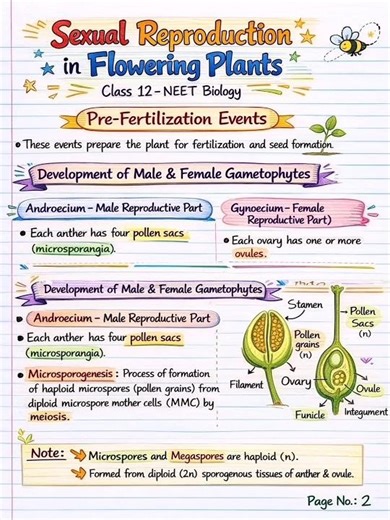 Sexual Reproduction
in Flowering Plants
Class 12 - NEET Biology
Pre-Fertilization Events
• These events prepare the plant for fertilization and seed formation.
Development of Male & Female Gametophytes
Androecium – Male Reproductive Part
• Each anther has four pollen sacs
(microsporangia).
Gynoecium – Female
Reproductive Part)
• Each ovary has one or more
ovules.
Development of Male & Female Gametophytes
• Androecium – Male Reproductive Part
• Each anther has four pollen sacs
(microsporangia).
• Microsporogenesis : Process of formation
of haploid microspores (pollen grains) from
diploid microspore mother cells (MMC) by
meiosis.
Stamen
Pollen
Sacs
(n)
Pollen
grains
(n)
Filament
Ovary
Ovule
Funicle
Integument
Note:
→ Microspores and Megaspores are haploid (n).
→ Formed from diploid (2n) sporogenous tissues of anther & ovule.
Page No.: 2